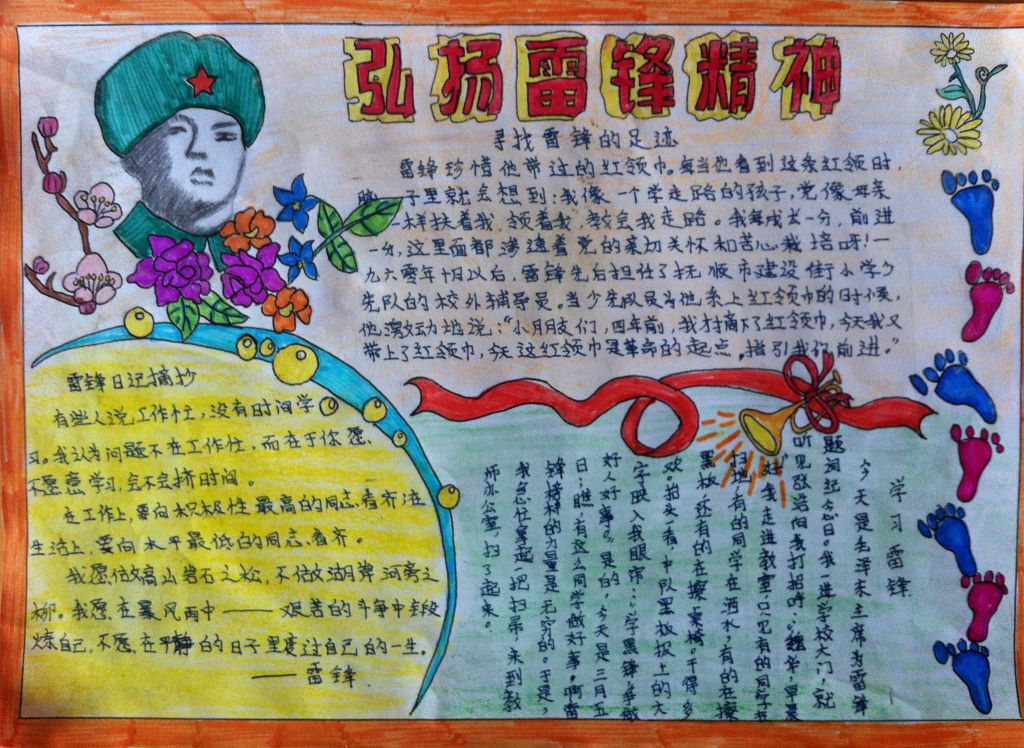 弘扬雷锋精神
寻找雷锋的足迹
雷锋珍惜他带过的红领巾。每当他看到这条红领时，
子里就会想到：我像一个学走路的孩子，党像母亲
一样扶着我 领着我，教会我走路。我每成长一分，前进
一分，这里面都渗透着党的亲切关怀和苦心栽培呀！一
九六零年十月以后，雷锋先后担任了抚顺市建设街小学少
先队的校外辅导员。当少先队员为他系上红领巾的时候，
他激动地说：“小月月友们，四年前，我才摘下了红领巾，今天我又
带上了红领巾，今天这红领巾是革命的起点。指引我们前进。”
雷锋日记摘抄
有些人说工作忙，没有时间学
习。我认为问题不在工作忙，而在于你愿、
不愿意学习，会不会挤时间。
在工作上，要向积极性最高的同志看齐，在
生活上，要向水平最低的同志看齐。
我愿做高山岩石之松，不做湖岸河旁之
柳。我愿在暴风雨中——艰苦的斗争中锻
炼自己，不愿在平静的日子里度过自己的一生。
——雷锋
学习雷锋
今天是毛泽东主席为雷锋
题词纪念日。我一进学校大门，就
听见张浩向我打招呼：“魏华，早晨
好”我走进教室只见有的同学在
扫地有的同学在洒水，有的在擦
黑板还有的在擦桌椅。干得多
欢。抬头一看，中队黑板报上的大
字映入我眼帘：“学雷锋争做
好人好事”。是的，今天是三月五
日；瞧有这么同学做好事。啊雷
锋榜样的力量是无穷的。于是，
我急忙拿起把扫帚来到教
师办公室，扫了起来。